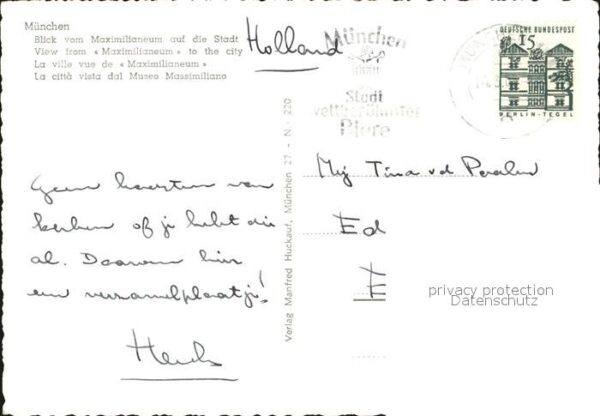 München
Blick vom Maximilianeum auf die Stadt
View from «Maximilianeum» to the city
La ville vue de «Maximilianeum»
La città vista dal Museo Massimiliano
Holland
München
Stadt
weltberühmter
Biere
DEUTSCHE BUNDESPOST
15
BERLIN-TEGEL
Geen kaarten van
kerken of je hebt die
al. Daarom hier
een verzamelplaatje!
Henk
Verlag Manfred Huckauf, München 27 - N. 220
Mej Tina vd
Ed
E
privacy protection
Datenschutz